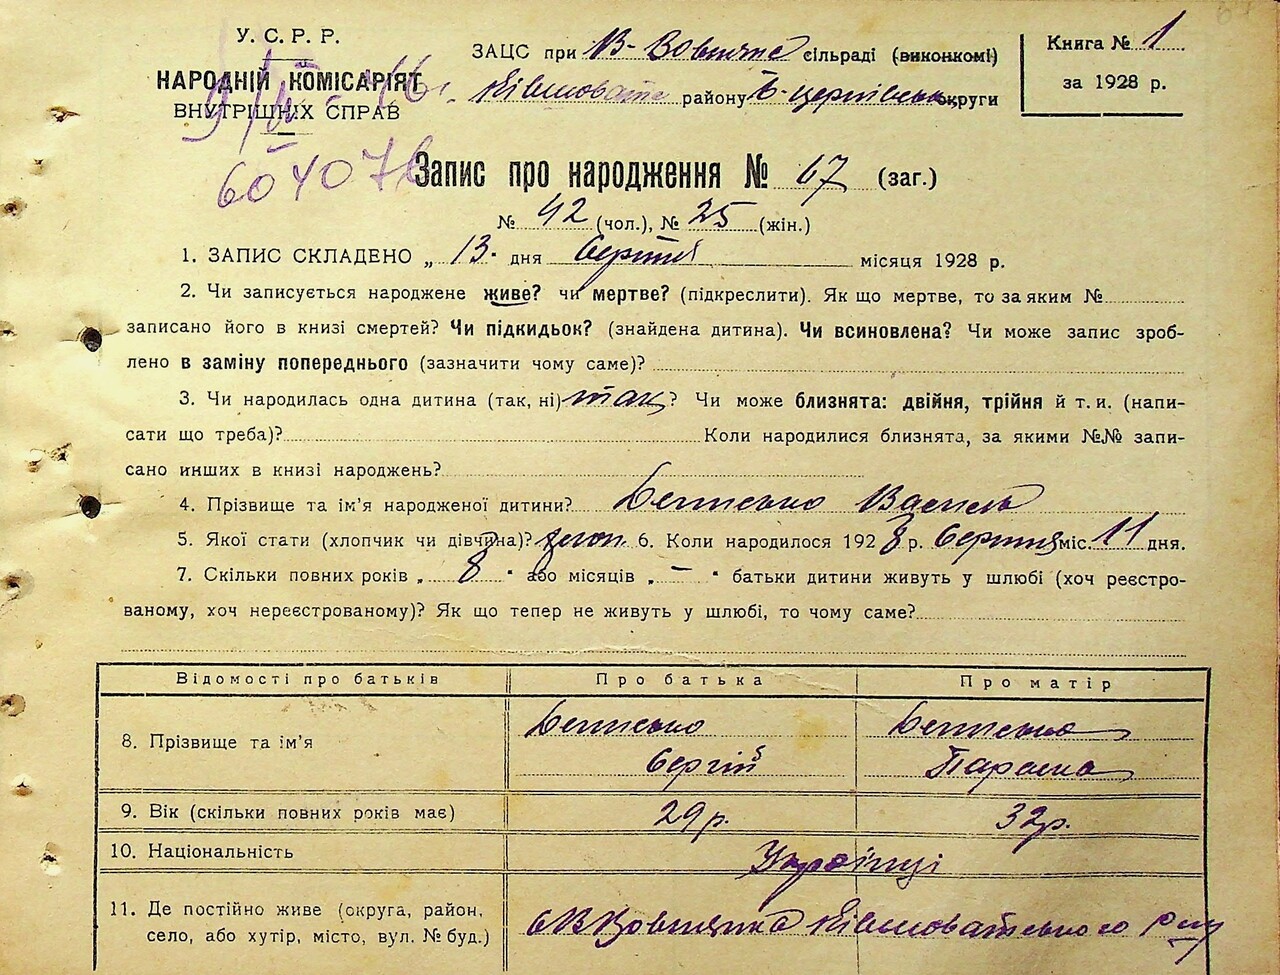 У. С. Р. Р.
НАРОДНІЙ КОМІСАРІЯТ
ВНУТРІШНІХ СПРАВ
ЗАЦС при В- сільраді (виконкомі)
району Б-церківськ округи
Книга № 1
за 1928 р.
604076
Запис про народження № 67 (заг.)
№ 42 (чол.), № 25 (жін.)
1. ЗАПИС СКЛАДЕНО „ 13. дня Серпня місяця 1928 р.
2. Чи записується народжене живе? чи мертве? (підкреслити). Як що мертве, то за яким №
записано його в книзі смертей? Чи підкидьок? (знайдена дитина). Чи всиновлена? Чи може запис зроб-
лено в заміну попереднього (зазначити чому саме)?
3. Чи народилась одна дитина (так, ні) так ? Чи може близнята: двійня, трійня й т. и. (напи-
сати що треба)? Коли народилися близнята, за якими №№ запи-
сано инших в книзі народжень?
4. Прізвище та ім'я народженої дитини? Василь
5. Якої стати (хлопчик чи дівчина)? 6. Коли народилося 1928 р. Серпня міс. 11 дня.
7. Скільки повних років „ 8 " або місяців „ – " батьки дитини живуть у шлюбі (хоч реєстро-
ваному, хоч нереєстрованому)? Як що тепер не живуть у шлюбі, то чому саме?
Відомості про батьків Про батька Про матір
8. Прізвище та ім'я Сергій Параска
9. Вік (скільки повних років має) 29 р. 32 р.
10. Національність Українці
11. Де постійно живе (округа, район,
село, або хутір, місто, вул. № буд.)